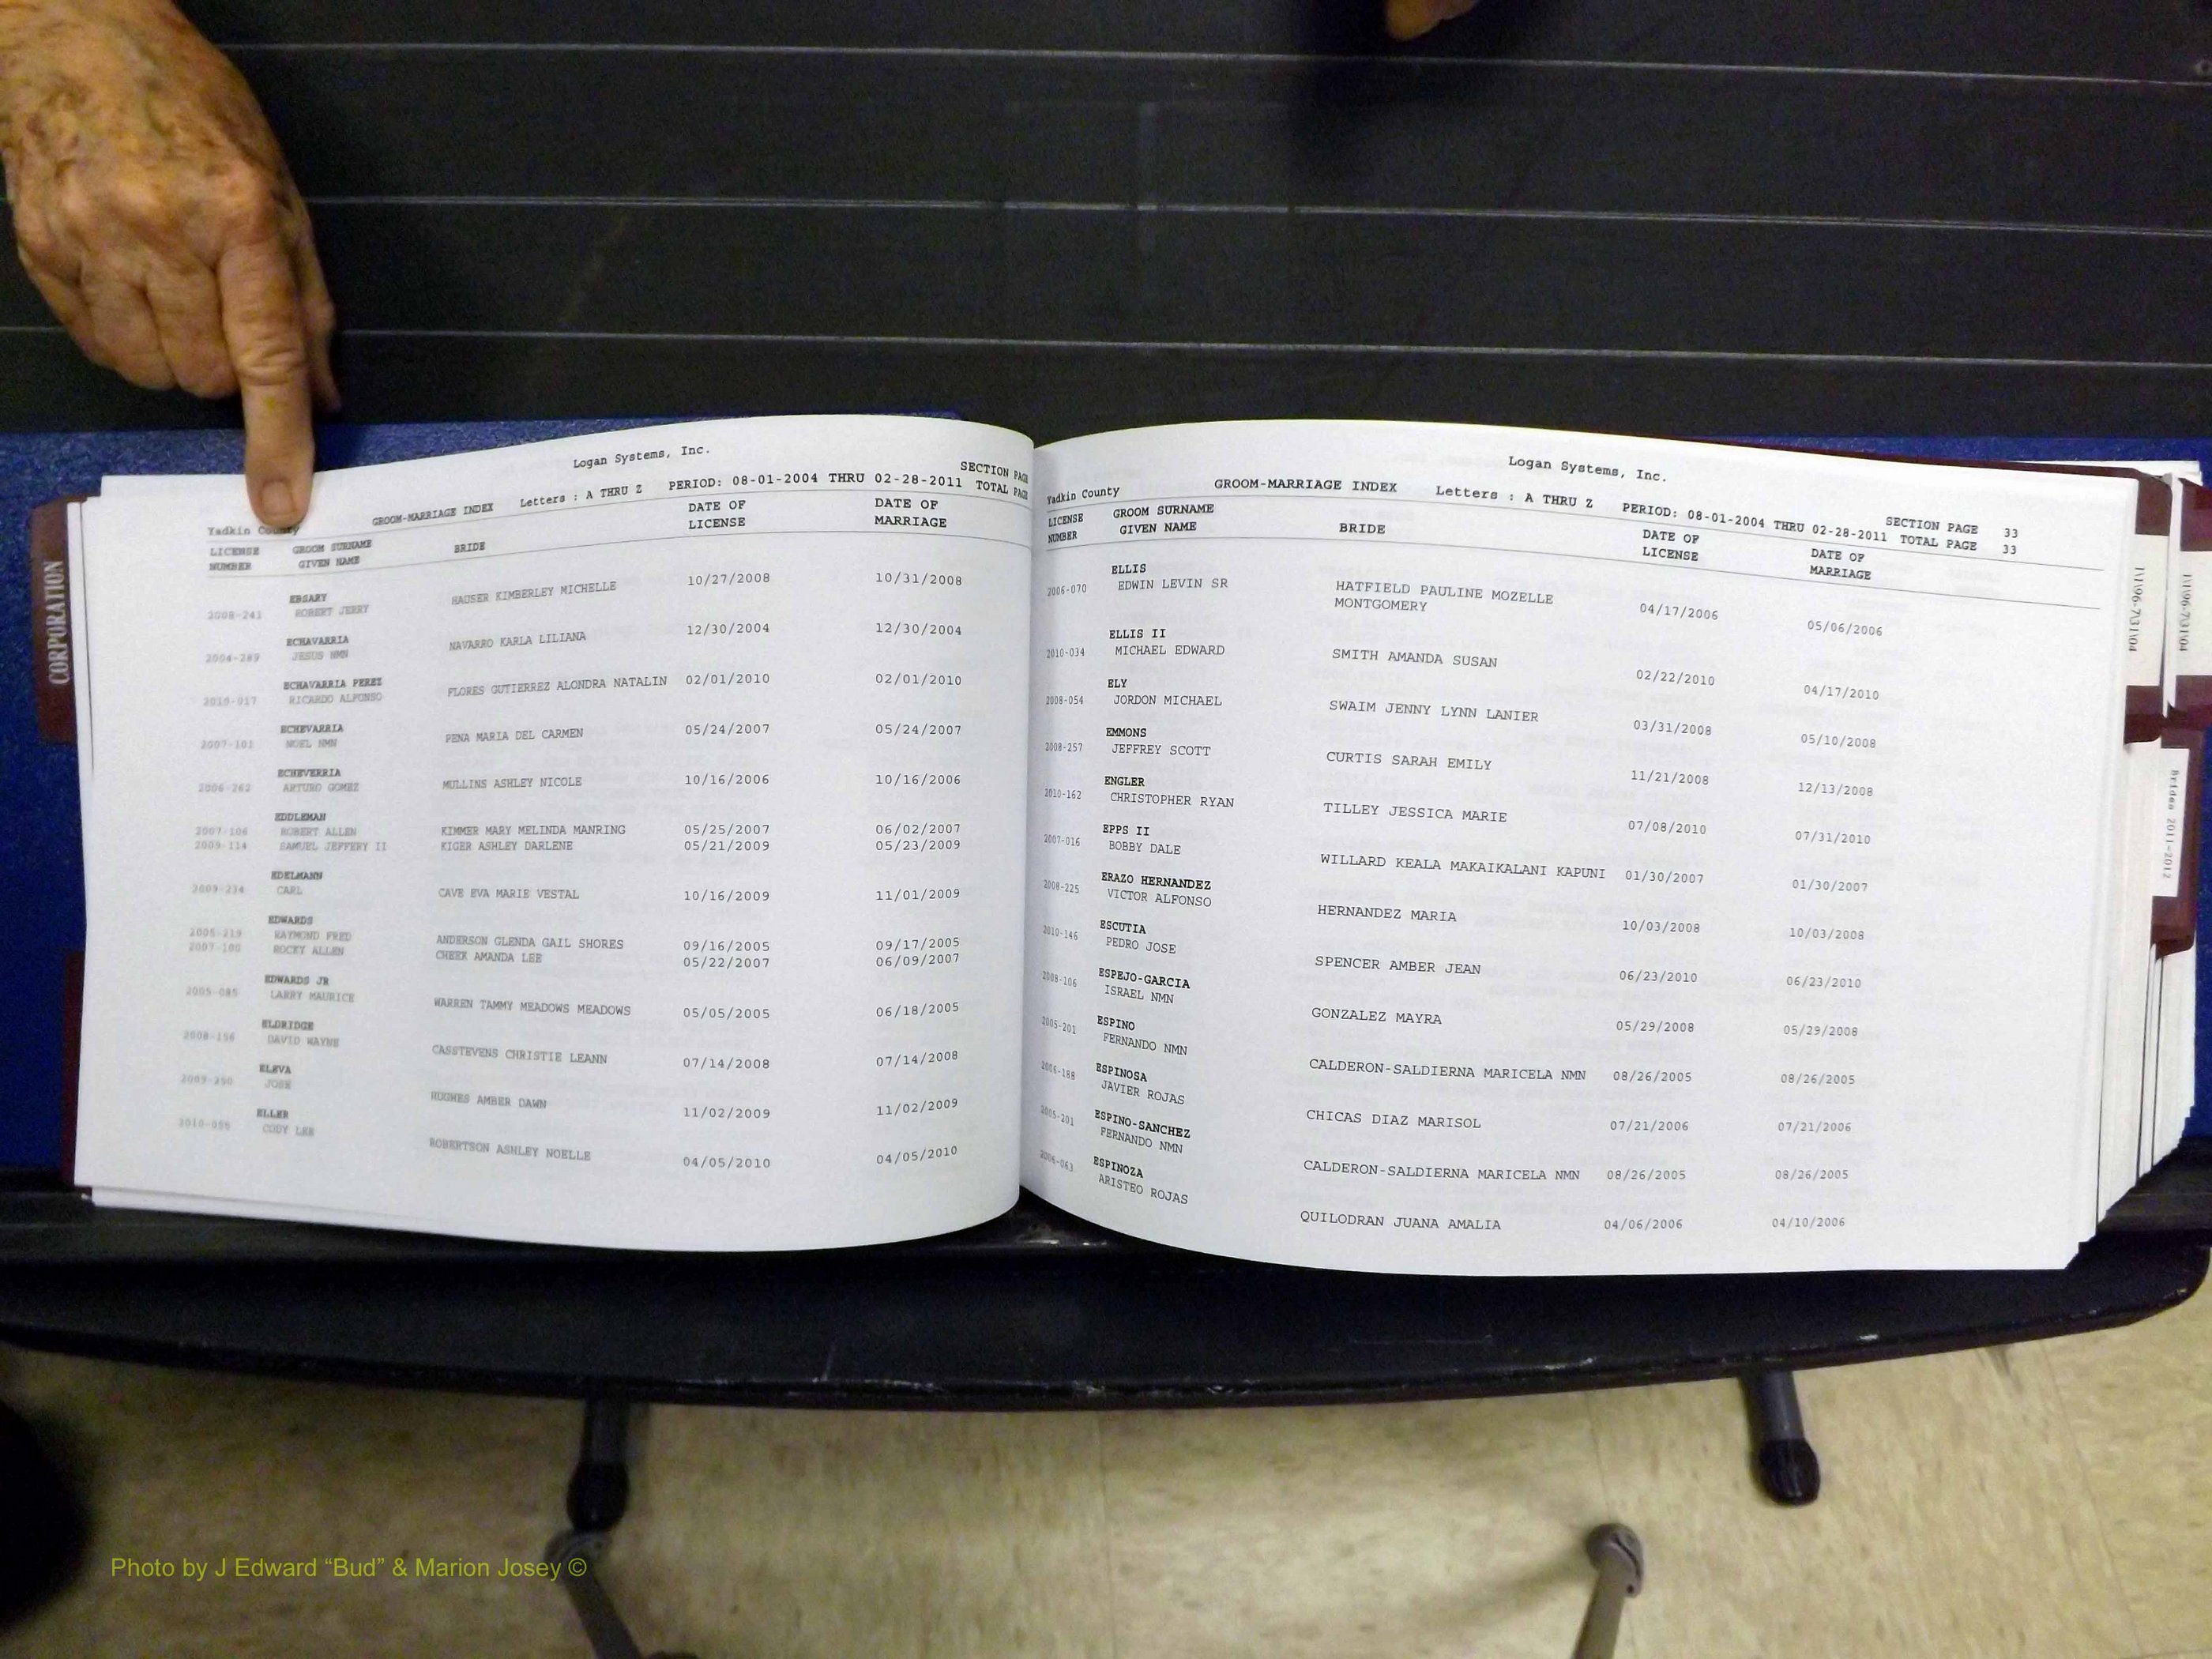 Logan Systems, Inc.
SECTION PAGE
Yadkin County GROOM-MARRIAGE INDEX Letters : A THRU Z PERIOD: 08-01-2004 THRU 02-28-2011 TOTAL PAGE
LICENSE GROOM SURNAME BRIDE DATE OF DATE OF
NUMBER GIVEN NAME LICENSE MARRIAGE
EBSARY
2008-241 ROBERT JERRY HAUSER KIMBERLEY MICHELLE 10/27/2008 10/31/2008
ECHAVARRIA
2004-289 JESUS NMN NAVARRO KARLA LILIANA 12/30/2004 12/30/2004
ECHAVARRIA PEREZ
2010-017 RICARDO ALFONSO FLORES GUTIERREZ ALONDRA NATALIN 02/01/2010 02/01/2010
ECHEVARRIA
2007-101 NOEL NMN PENA MARIA DEL CARMEN 05/24/2007 05/24/2007
ECHEVERRIA
2006-262 ARTURO GOMEZ MULLINS ASHLEY NICOLE 10/16/2006 10/16/2006
EDDLEMAN
2007-106 ROBERT ALLEN KIMMER MARY MELINDA MANRING 05/25/2007 06/02/2007
2009-114 SAMUEL JEFFERY II KIGER ASHLEY DARLENE 05/21/2009 05/23/2009
EDELMANN
2009-234 CARL CAVE EVA MARIE VESTAL 10/16/2009 11/01/2009
EDWARDS
2005-219 RAYMOND FRED ANDERSON GLENDA GAIL SHORES 09/16/2005 09/17/2005
2007-100 ROCKY ALLEN CHEEK AMANDA LEE 05/22/2007 06/09/2007
EDWARDS JR
2005-085 LARRY MAURICE WARREN TAMMY MEADOWS MEADOWS 05/05/2005 06/18/2005
ELDRIDGE
2008-156 DAVID WAYNE CASSTEVENS CHRISTIE LEANN 07/14/2008 07/14/2008
ELEVA
2009-250 JOSE HUGHES AMBER DAWN 11/02/2009 11/02/2009
ELLER
CODY LEE ROBERTSON ASHLEY NOELLE 04/05/2010 04/05/2010
Logan Systems, Inc.
SECTION PAGE 33
Yadkin County GROOM-MARRIAGE INDEX Letters : A THRU Z PERIOD: 08-01-2004 THRU 02-28-2011 TOTAL PAGE 33
LICENSE GROOM SURNAME BRIDE DATE OF DATE OF
NUMBER GIVEN NAME LICENSE MARRIAGE
ELLIS
2006-070 EDWIN LEVIN SR HATFIELD PAULINE MOZELLE 04/17/2006 05/06/2006
MONTGOMERY
ELLIS II
2010-034 MICHAEL EDWARD SMITH AMANDA SUSAN 02/22/2010 04/17/2010
ELY
2008-054 JORDON MICHAEL SWAIM JENNY LYNN LANIER 03/31/2008 05/10/2008
EMMONS
2008-257 JEFFREY SCOTT CURTIS SARAH EMILY 11/21/2008 12/13/2008
ENGLER
2010-162 CHRISTOPHER RYAN TILLEY JESSICA MARIE 07/08/2010 07/31/2010
EPPS II
2007-016 BOBBY DALE WILLARD KEALA MAKAIKALANI KAPUNI 01/30/2007 01/30/2007
ERAZO HERNANDEZ
2008-225 VICTOR ALFONSO HERNANDEZ MARIA 10/03/2008 10/03/2008
ESCUTIA
2010-146 PEDRO JOSE SPENCER AMBER JEAN 06/23/2010 06/23/2010
ESPEJO-GARCIA
2008-106 ISRAEL NMN GONZALEZ MAYRA 05/29/2008 05/29/2008
ESPINO
2005-201 FERNANDO NMN CALDERON-SALDIERNA MARICELA NMN 08/26/2005 08/26/2005
ESPINOSA
2006-188 JAVIER ROJAS CHICAS DIAZ MARISOL 07/21/2006 07/21/2006
ESPINO-SANCHEZ
2005-201 FERNANDO NMN CALDERON-SALDIERNA MARICELA NMN 08/26/2005 08/26/2005
ESPINOZA
2006-063 ARISTEO ROJAS QUILODRAN JUANA AMALIA 04/06/2006 04/10/2006
CORPORATION
1\1\96-7\31\04
1\1\96-7\31\04
Brides 2011-2012
Photo by J Edward “Bud” & Marion Josey ©